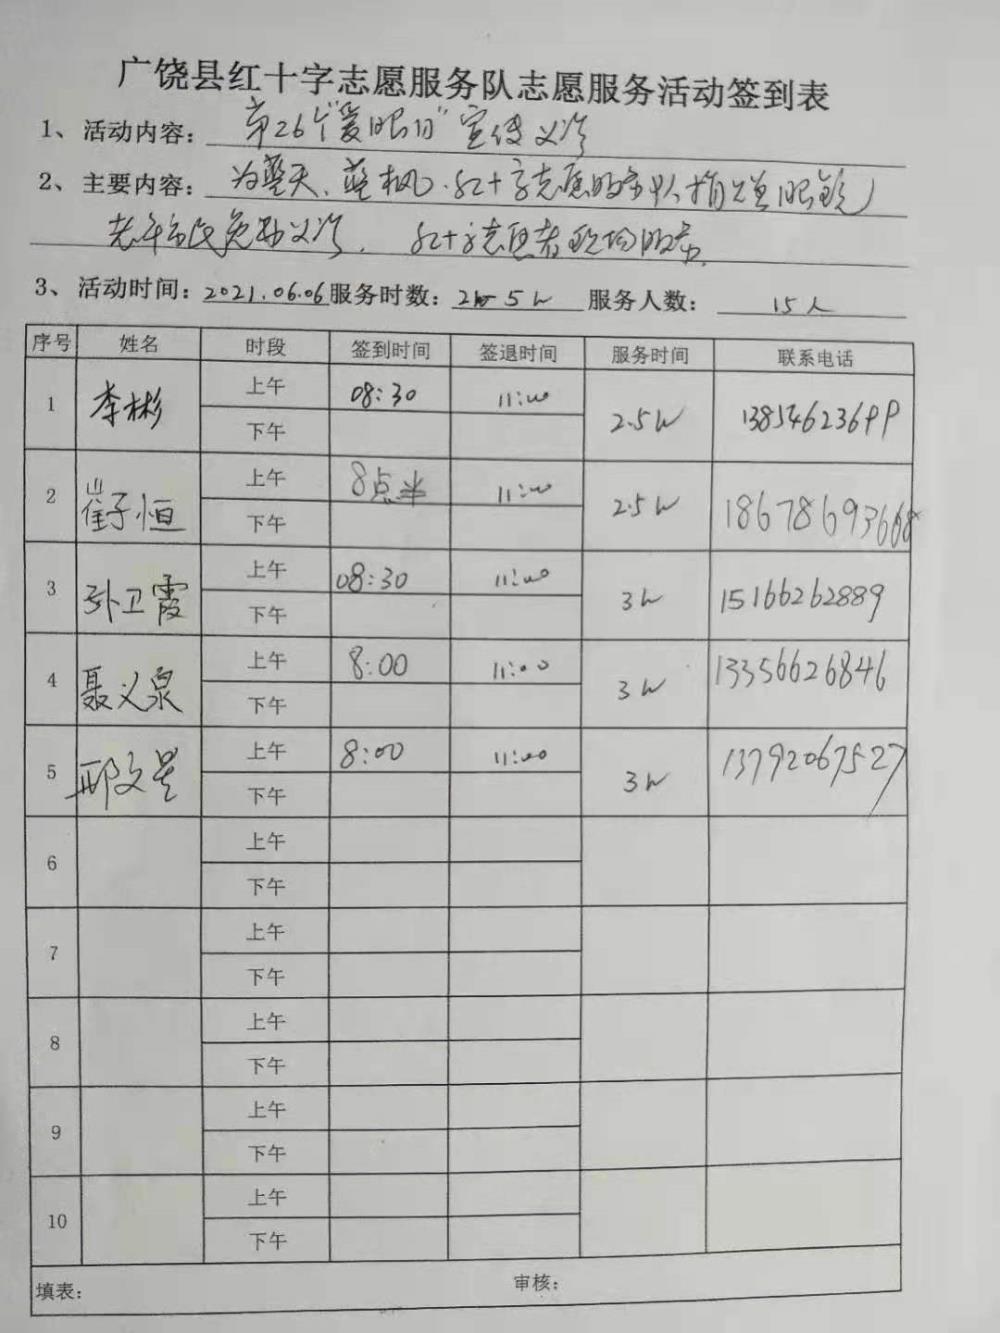 广饶县红十字志愿服务队志愿服务活动签到表
1、活动内容：第26个“爱眼日”宣传义诊
2、主要内容：为蓝天、蓝枫、红十字志愿服务队捐赠眼镜
老年市民免费义诊，红十字志愿者现场服务
3、活动时间：2021.06.06 服务时数：2.5h 服务人数：15人
序号 姓名 时段 签到时间 签退时间 服务时间 联系电话
1 李彬 上午 08:30 11:00 2.5h 13854623699
下午
2 崔子恒 上午 8点半 11:00 2.5h
下午
3 孙卫霞 上午 08:30 11:00 3h 15166262889
下午
4 聂义泉 上午 8:00 11:00 3h 13356626846
下午
5 邴文 上午 8:00 11:00 3h 13792067527
下午
6 上午
下午
7 上午
下午
8 上午
下午
9 上午
下午
10 上午
下午
填表： 审核：